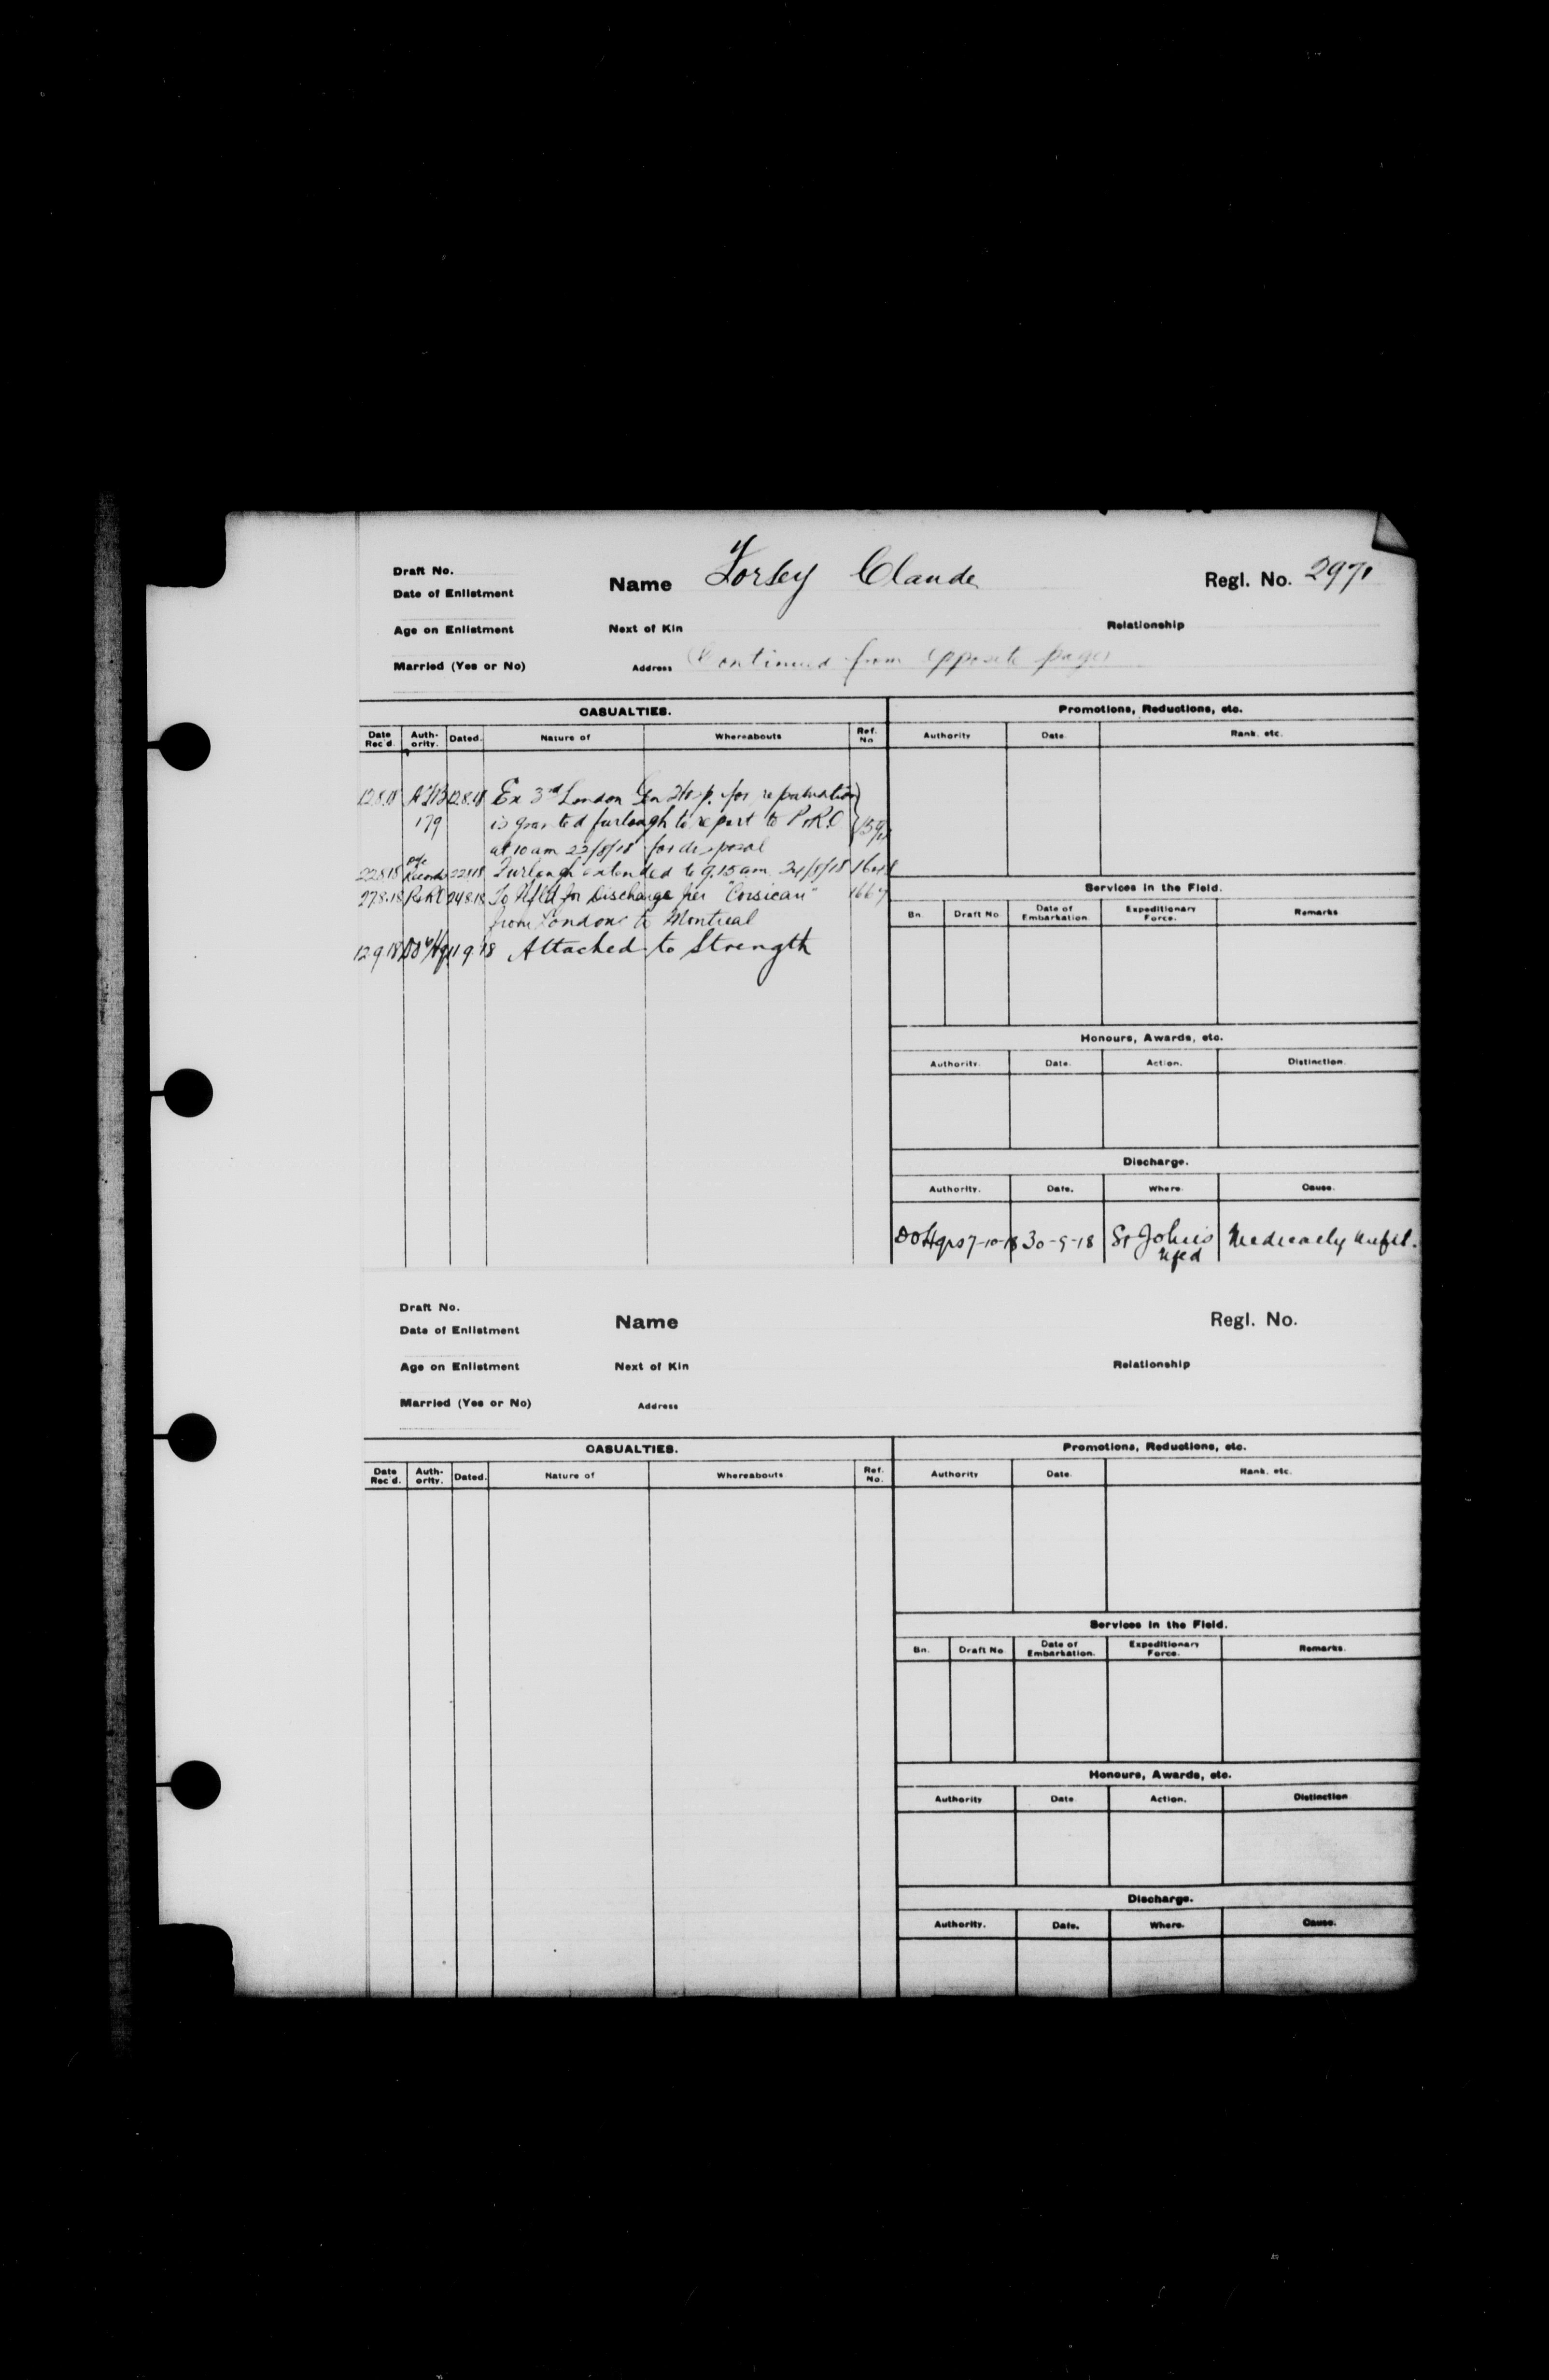 Draft No.
Date of Enlistment
Name Forsey Claude
Regl. No. 2971
Age on Enlistment
Next of Kin
Relationship
Married (Yes or No)
Address (Continued from opposite page)
CASUALTIES.
Promotions, Reductions, etc.
Date Rec'd. Auth-ority. Dated. Nature of Whereabouts Ref. No
Authority Date. Rank. etc.
12.8.18 12.8.18 Ex 3rd London Gen Hosp. for repatriation
179 is granted furlough to report to P.&R.O
at 10 am 22/8/18 for disposal
22.8.18 Records 22.8.18 Furlough extended to 9.15 am 24/8/18
27.8.18 P&RO 24.8.18 To Nfld for Discharge per "Corsican" 1667
from London to Montreal
12 9 18 11 9 18 Attached to Strength
Services in the Field.
Bn. Draft No Date of Embarkation. Expeditionary Force. Remarks.
Honours, Awards, etc.
Authority. Date. Action. Distinction.
Discharge.
Authority. Date. Where. Cause.
DOHqrs 7-10-18 30-9-18 St John's Nfld Medically Unfit.
Draft No.
Date of Enlistment
Name
Regl. No.
Age on Enlistment
Next of Kin
Relationship
Married (Yes or No)
Address
CASUALTIES.
Promotions, Reductions, etc.
Date Rec'd. Auth-ority. Dated. Nature of Whereabouts Ref. No.
Authority Date. Rank. etc.
Services in the Field.
Bn. Draft No Date of Embarkation. Expeditionary Force. Remarks.
Honours, Awards, etc.
Authority Date. Action. Distinction
Discharge.
Authority. Date. Where. Cause.